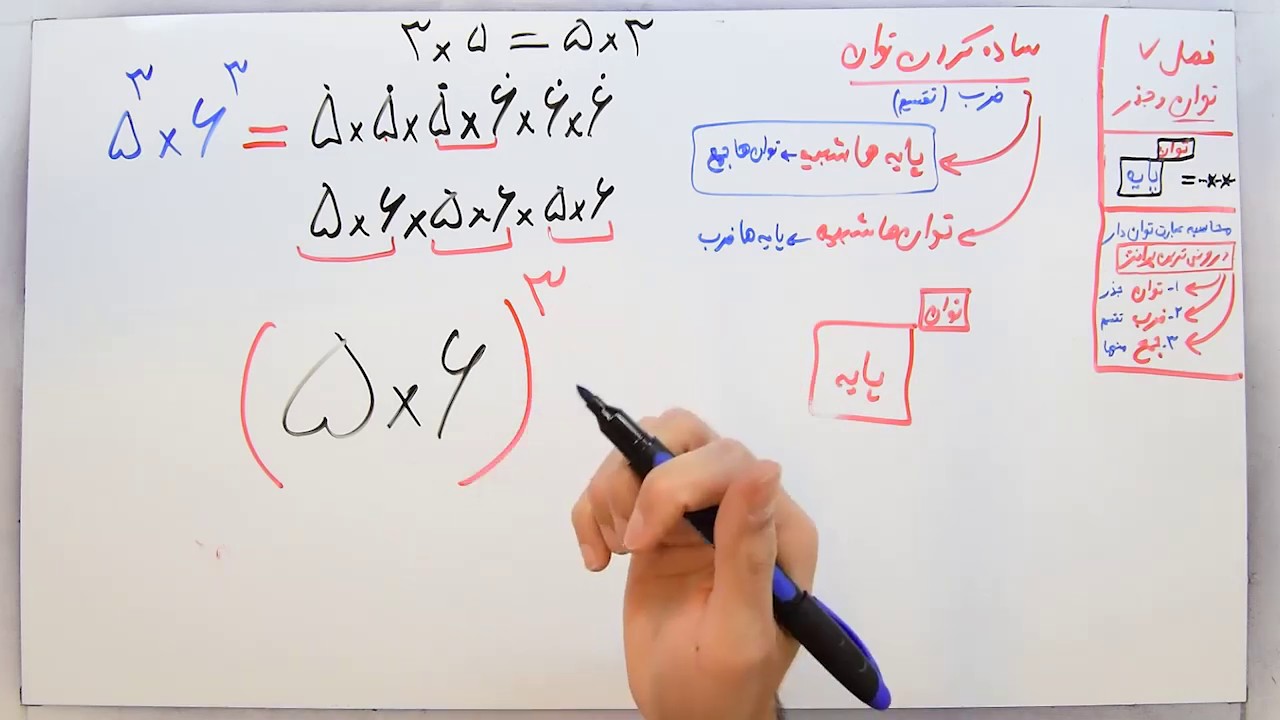 فصل ۷
توان و جذر
توان
پایه = ...×..×
محاسبه عبارت توان دار
درونی ترین پرانتز
۱- توان جذر
۲- ضرب تقسیم
۳- جمع منها
ساده کردن توان
ضرب (تقسیم)
پایه ها شبیه ← توان ها جمع
توان ها شبیه ← پایه ها ضرب
توان
پایه
۳ × ۵ = ۵ × ۳
۵³ × ۶³ = ۵ × ۵ × ۵ × ۶ × ۶ × ۶
۵ × ۶ × ۵ × ۶ × ۵ × ۶
(۵ × ۶)³